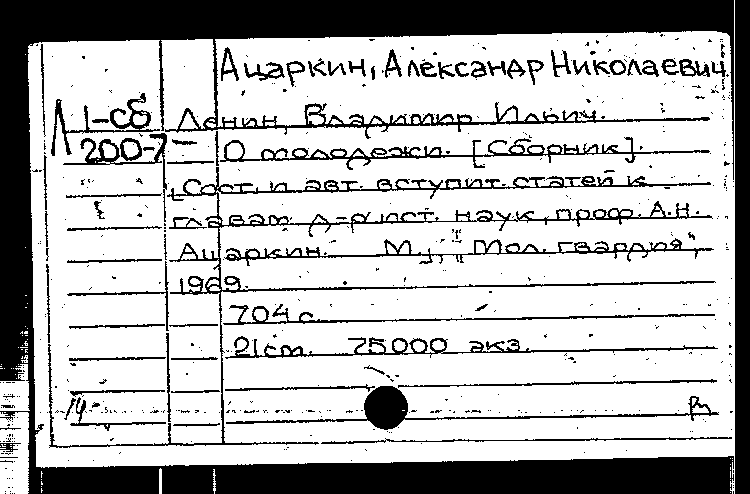 Ацаркин, Александр Николаевич
Л 1-сб Ленин, Владимир Ильич.
200-7 О молодежи. [Сборник].
Сост. и авт. вступит. статей к
главам д-р ист. наук, проф. А.Н.
Ацаркин. М., "Мол. гвардия",
1969.
704 с.
21 см. 75000 экз.
14-